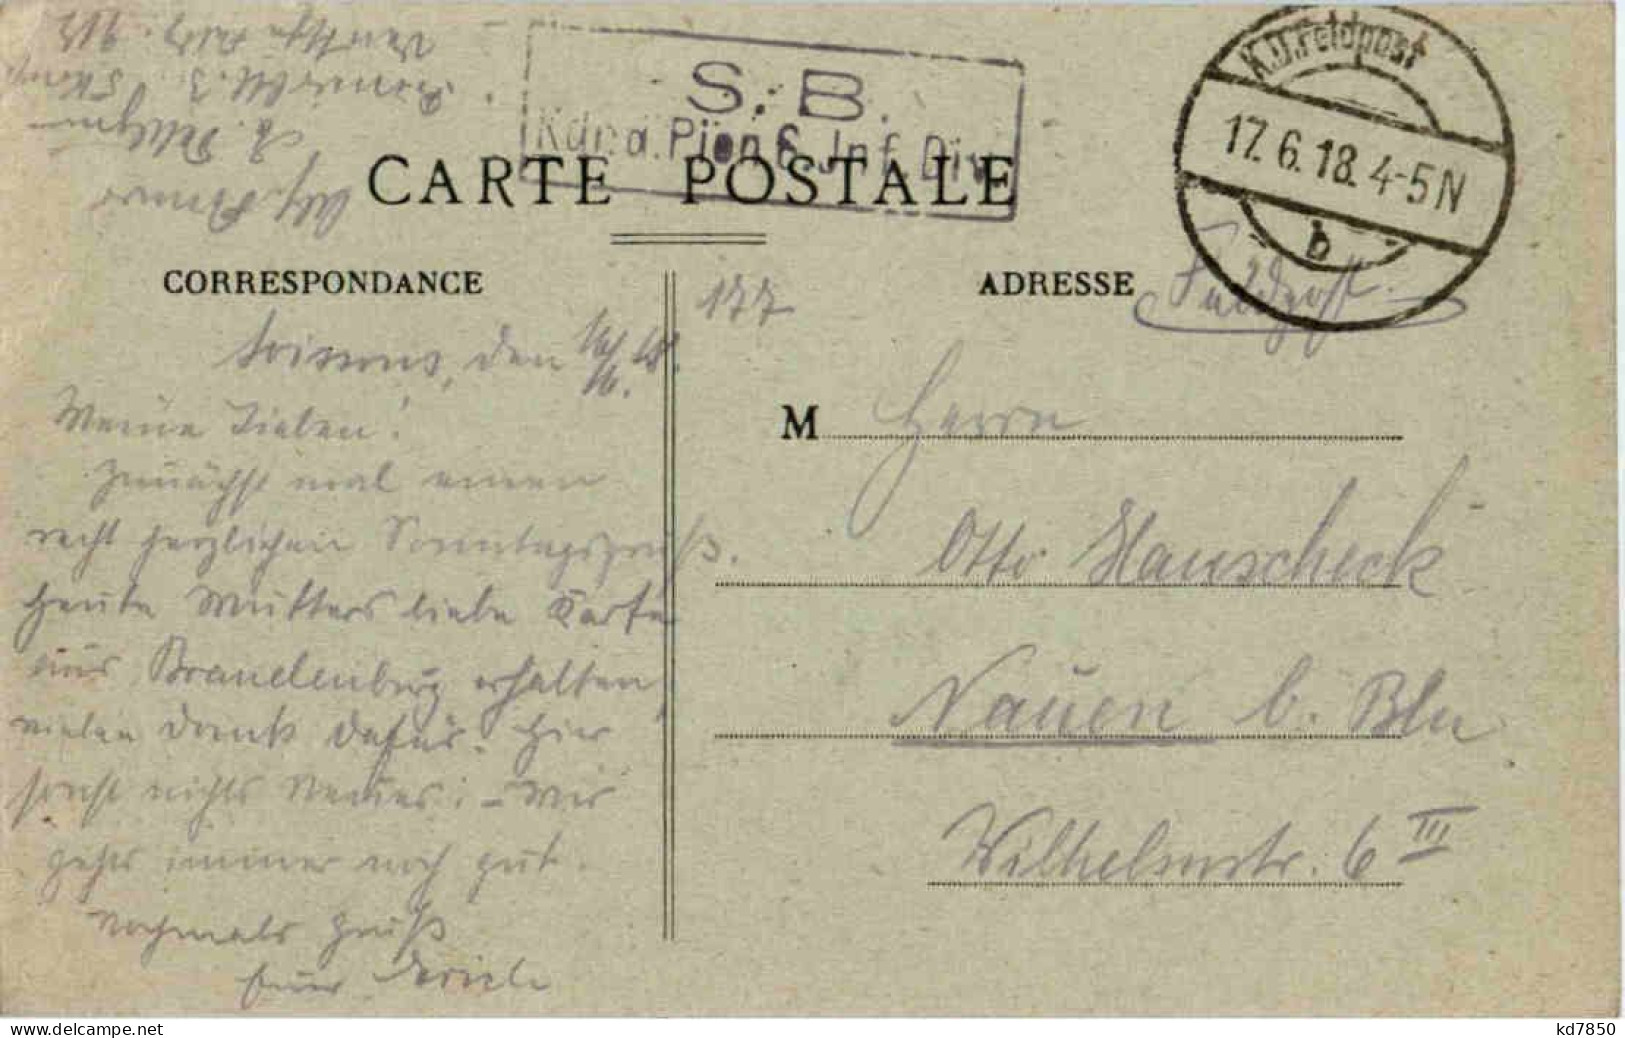 S. B.
Kdr. d. Pion. 6. Inf. Div.
K.D. Feldpost
17. 6. 18. 4-5 N
b
CARTE POSTALE
CORRESPONDANCE
ADRESSE
Feldpost.
177
Soissons, den 16/6. 18.
Meine Lieben!
Zunächst mal einen
recht herzlichen Sonntagsgruß.
Heute Mutters liebe Karte
aus Brandenburg erhalten
vielen Dank dafür. Hier
sonst nichts Neues: - Mir
gehts immer noch gut.
Nochmals Gruß
Euer
M Herrn
Otto Hauscheck
Nauen b. Bln
Wilhelmstr. 6 III
www.delcampe.net
kd7850